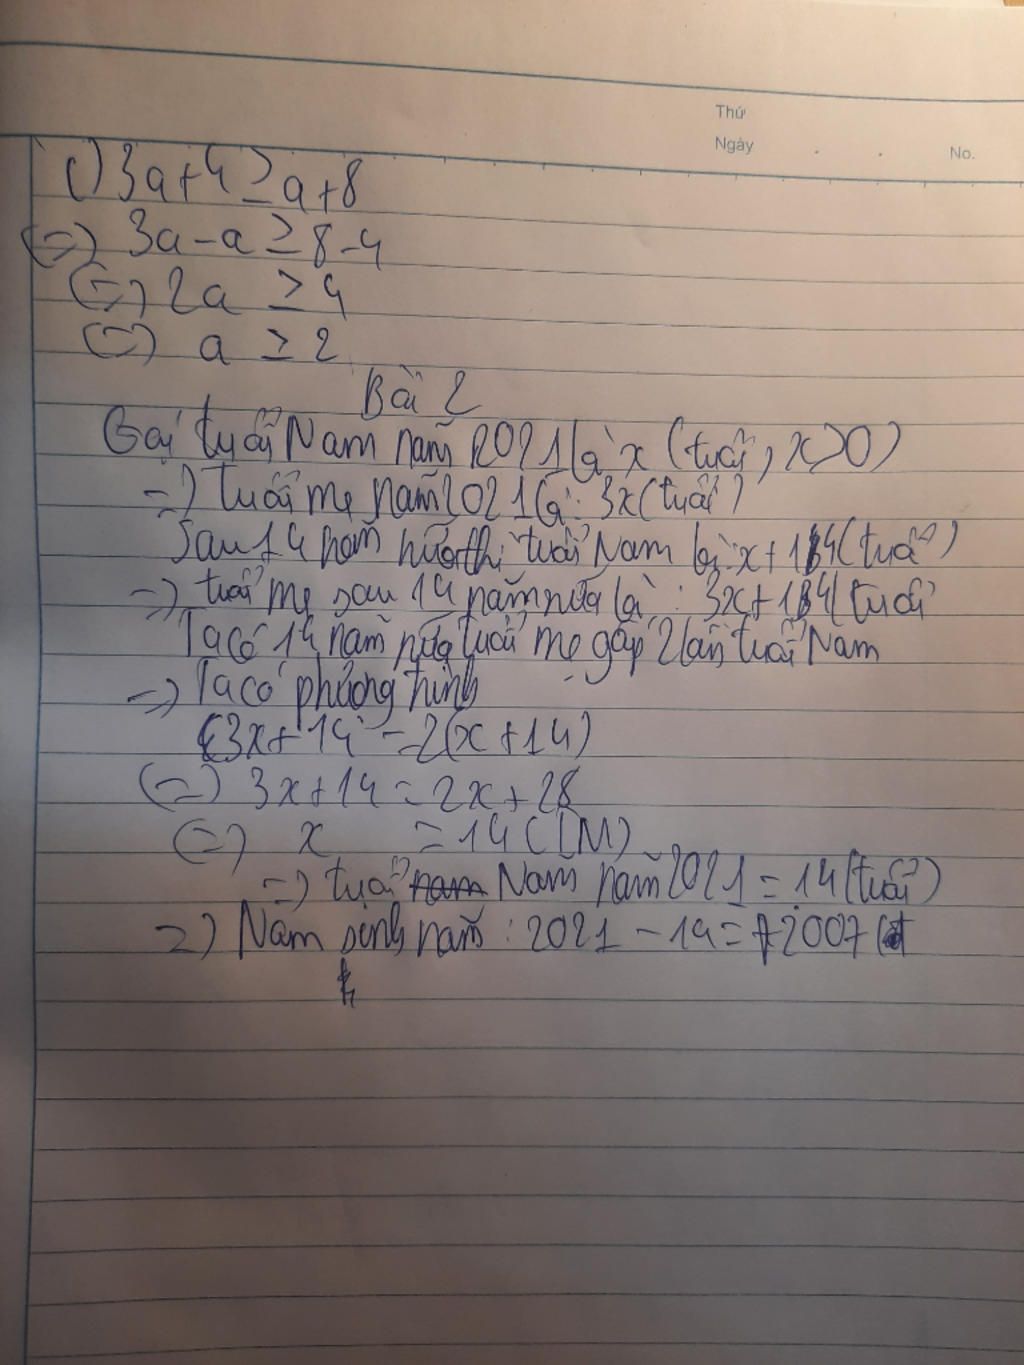 Thứ
Ngày
No.
c) 3a + 4 ≥ a + 8
(=) 3a - a ≥ 8 - 4
(=) 2a ≥ 4
(=) a ≥ 2
Bài 2
Gọi tuổi Nam năm 2021 là x (tuổi, x>0)
=) Tuổi mẹ năm 2021 là: 3x (tuổi)
Sau 14 năm nữa thì tuổi Nam là: x + 14 (tuổi)
=) tuổi mẹ sau 14 năm nữa là: 3x + 14 (tuổi
Ta có 14 năm nữa tuổi mẹ gấp 2 lần tuổi Nam
=) Ta có phương trình
3x + 14 = 2(x + 14)
(=) 3x + 14 = 2x + 28
(=) x = 14 (TM)
=) tuổi nam Nam năm 2021 = 14 (tuổi)
=) Nam sinh năm: 2021 - 14 = 2007